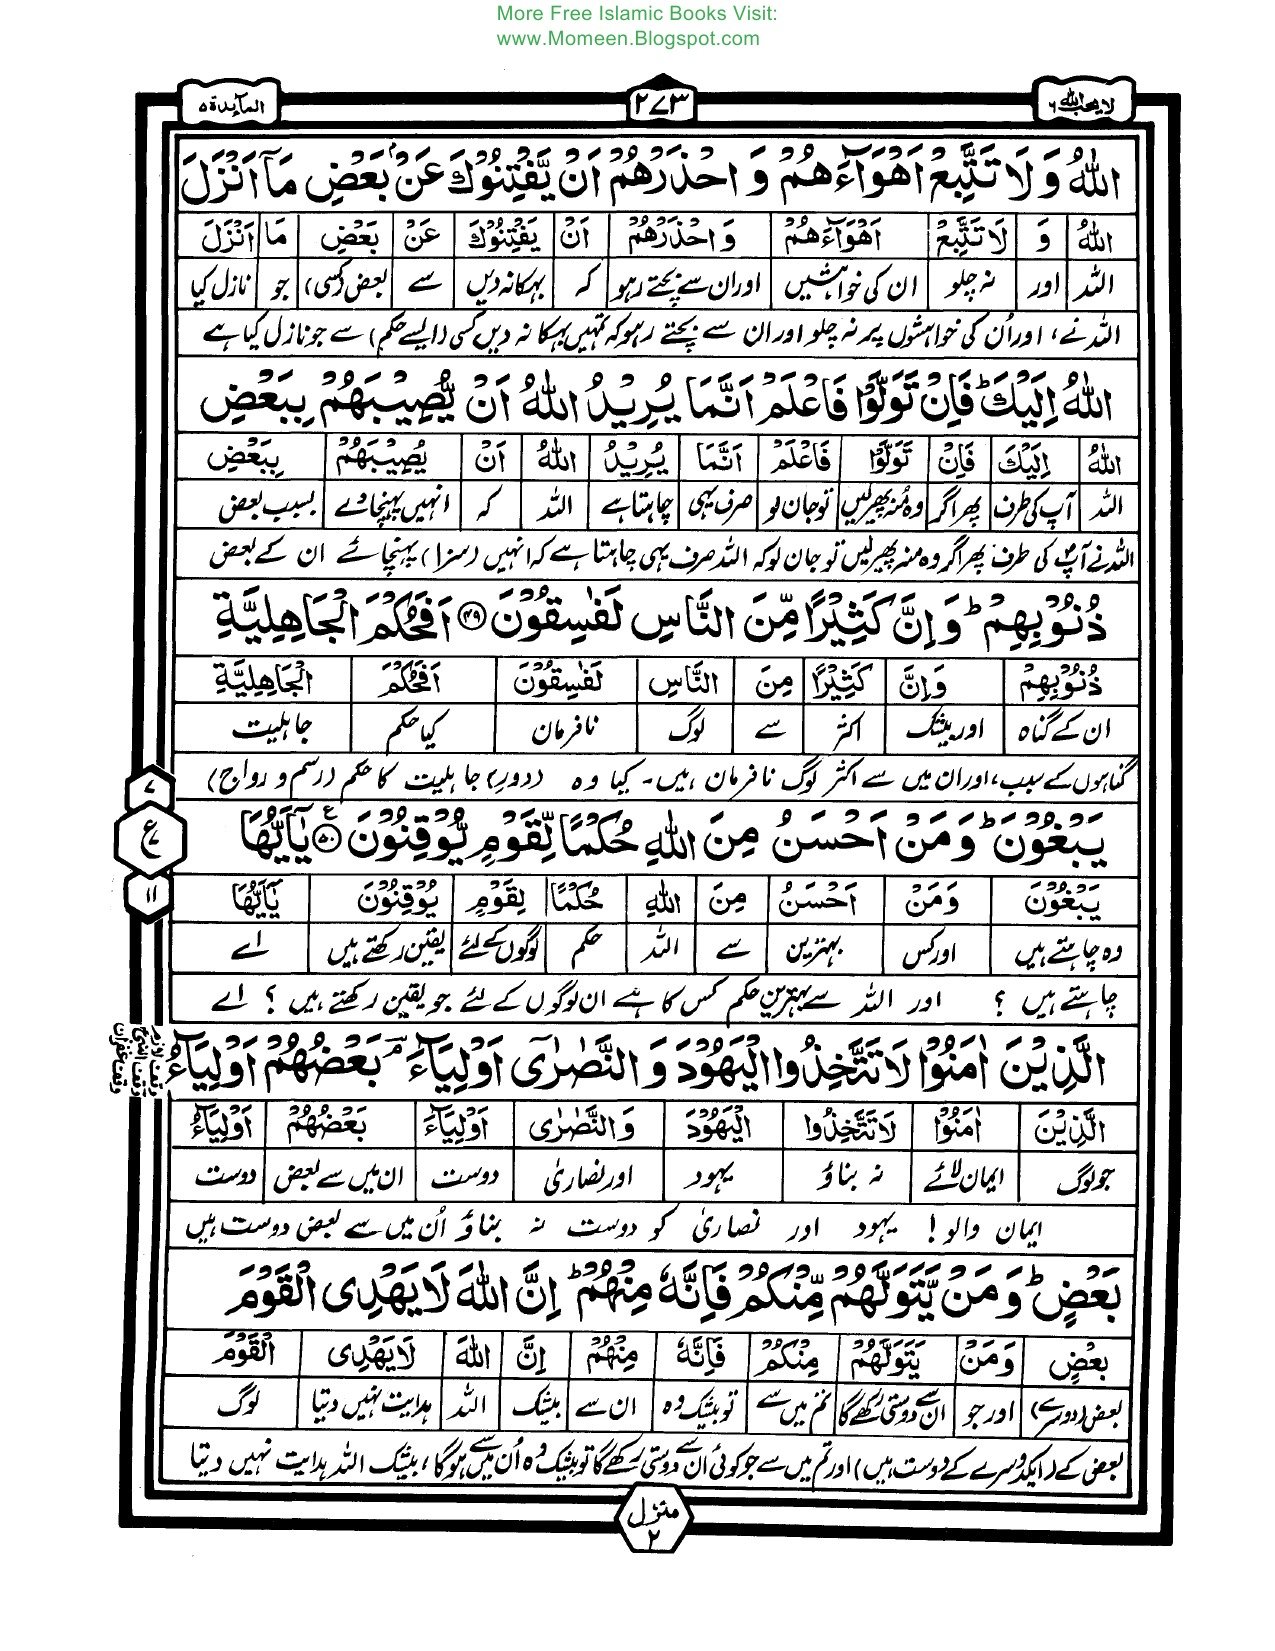 More Free Islamic Books Visit:
www.Momeen.Blogspot.com
لا یحب اللہ ٦
۲۷۳
المآیدة ۵
اللّٰهُ وَ لَا تَتَّبِعْ اَهْوَآءَهُمْ وَ احْذَرْهُمْ اَنْ یَّفْتِنُوْكَ عَنْۢ بَعْضِ مَآ اَنْزَلَ
اللّٰهُ وَ لَا تَتَّبِعْ اَهْوَآءَهُمْ وَ احْذَرْهُمْ اَنْ یَفْتِنُوْكَ عَنْ بَعْضِ مَا اَنْزَلَ
اللہ اور نہ چلو ان کی خواہشیں اور ان سے بچتے رہو کہ بہکا نہ دیں سے بعض (کسی) جو نازل کیا
اللہ نے، اور اُن کی خواہشوں پر نہ چلو اور ان سے بچتے رہو کہ تمہیں بہکا نہ دیں کسی (ایسے حکم) سے جو نازل کیا ہے
اللّٰهُ اِلَیْكَ ؕ فَاِنْ تَوَلَّوْا فَاعْلَمْ اَنَّمَا یُرِیْدُ اللّٰهُ اَنْ یُّصِیْبَهُمْ بِبَعْضِ
اللّٰهُ اِلَیْكَ فَاِنْ تَوَلَّوْا فَاعْلَمْ اَنَّمَا یُرِیْدُ اللّٰهُ اَنْ یُصِیْبَهُمْ بِبَعْضِ
اللہ آپ کی طرف پھر اگر وہ مُنہ پھیر لیں تو جان لو صرف یہی چاہتا ہے اللہ کہ انہیں پہنچا دے بسبب بعض
اللہ نے آپؐ کی طرف پھر اگر وہ منہ پھیر لیں تو جان لو کہ اللہ صرف یہی چاہتا ہے کہ انہیں (سزا) پہنچائے ان کے بعض
ذُنُوْبِهِمْ ؕ وَ اِنَّ كَثِیْرًا مِّنَ النَّاسِ لَفٰسِقُوْنَ ۴۹ اَفَحُكْمَ الْجَاهِلِیَّةِ
ذُنُوْبِهِمْ وَ اِنَّ كَثِیْرًا مِنَ النَّاسِ لَفٰسِقُوْنَ اَفَحُكْمَ الْجَاهِلِیَّةِ
ان کے گناہ اور بیشک اکثر سے لوگ نافرمان کیا حکم جاہلیت
گناہوں کے سبب، اور ان میں سے اکثر لوگ نافرمان ہیں۔ کیا وہ (دورِ) جاہلیت کا حکم (رسم و رواج)
یَبْغُوْنَ ؕ وَ مَنْ اَحْسَنُ مِنَ اللّٰهِ حُكْمًا لِّقَوْمٍ یُّوْقِنُوْنَ ۵۰ ع یٰۤاَیُّهَا
یَبْغُوْنَ وَ مَنْ اَحْسَنُ مِنَ اللّٰهِ حُكْمًا لِقَوْمٍ یُوْقِنُوْنَ یٰۤاَیُّهَا
وہ چاہتے ہیں اور کس بہترین سے اللہ حکم لوگوں کے لئے یقین رکھتے ہیں اے
چاہتے ہیں ؟ اور اللہ سے بہترین حکم کس کا ہے ان لوگوں کے لئے جو یقین رکھتے ہیں ؟ اے
۷
ع
۱۱
الَّذِیْنَ اٰمَنُوْا لَا تَتَّخِذُوا الْیَهُوْدَ وَ النَّصٰرٰۤی اَوْلِیَآءَ ۘ بَعْضُهُمْ اَوْلِیَآءُ
الَّذِیْنَ اٰمَنُوْا لَا تَتَّخِذُوا الْیَهُوْدَ وَ النَّصٰرٰی اَوْلِیَآءَ بَعْضُهُمْ اَوْلِیَآءُ
جو لوگ ایمان لائے نہ بناؤ یہود اور نصاریٰ دوست ان میں سے بعض دوست
ایمان والو! یہود اور نصاریٰ کو دوست نہ بناؤ اُن میں سے بعض دوست ہیں
وقف لازم
وقف غفران
بَعْضٍ ؕ وَ مَنْ یَّتَوَلَّهُمْ مِّنْكُمْ فَاِنَّهٗ مِنْهُمْ ؕ اِنَّ اللّٰهَ لَا یَهْدِی الْقَوْمَ
بَعْضٍ وَ مَنْ یَتَوَلَّهُمْ مِنْكُمْ فَاِنَّهٗ مِنْهُمْ اِنَّ اللّٰهَ لَا یَهْدِی الْقَوْمَ
بعض (دوسرے) اور جو ان سے دوستی رکھے گا تم میں سے تو بیشک وہ ان سے بیشک اللہ ہدایت نہیں دیتا لوگ
بعض کے (ایکدوسرے کے دوست ہیں) اور تم میں سے جو کوئی ان سے دوستی رکھے گا تو بیشک وہ اُن میں سے ہوگا، بیشک اللہ ہدایت نہیں دیتا
منزل
۲